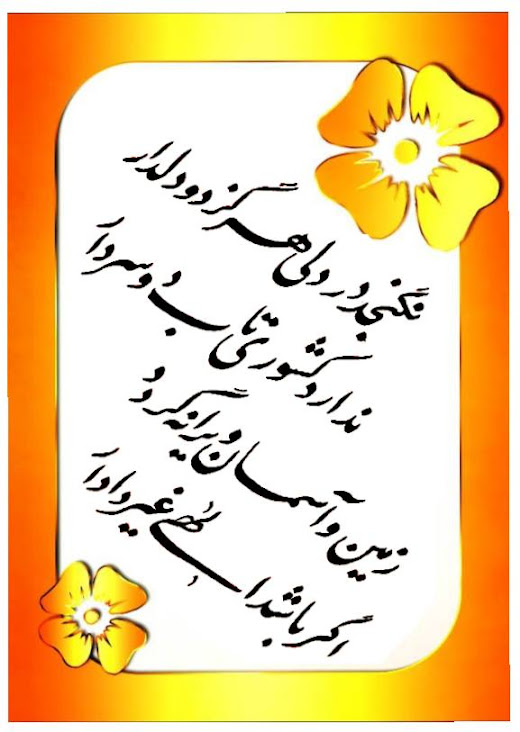 نگنجد در دلی هرگز دو دلدار
ندارد کشوری تاب دو سردار
زمین و آسمان ویرانه گردد
اگر باشد الهی غیر دادار